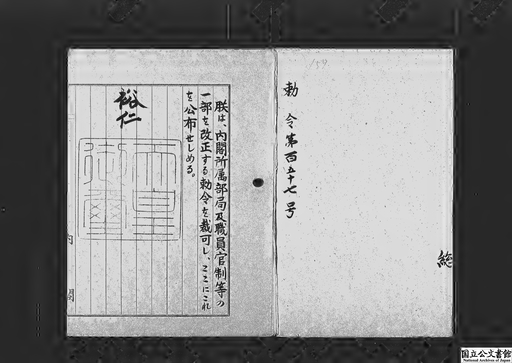 勅令第百五十七号
総
朕は、内閣所属部局及職員官制等の
一部を改正する勅令を裁可し、ここにこれ
を公布せしめる。
裕仁
天皇
御璽
内閣
国立公文書館
National Archives of Japan